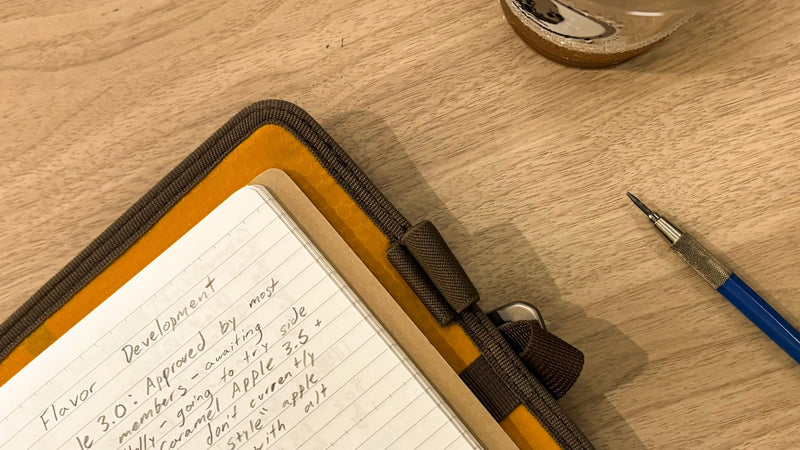 Flavor Development
le 3.0: Approved by most
members - awaiting
lly - going to try side
Caramel Apple 3.5 +
don't currently
style" apple
with alt